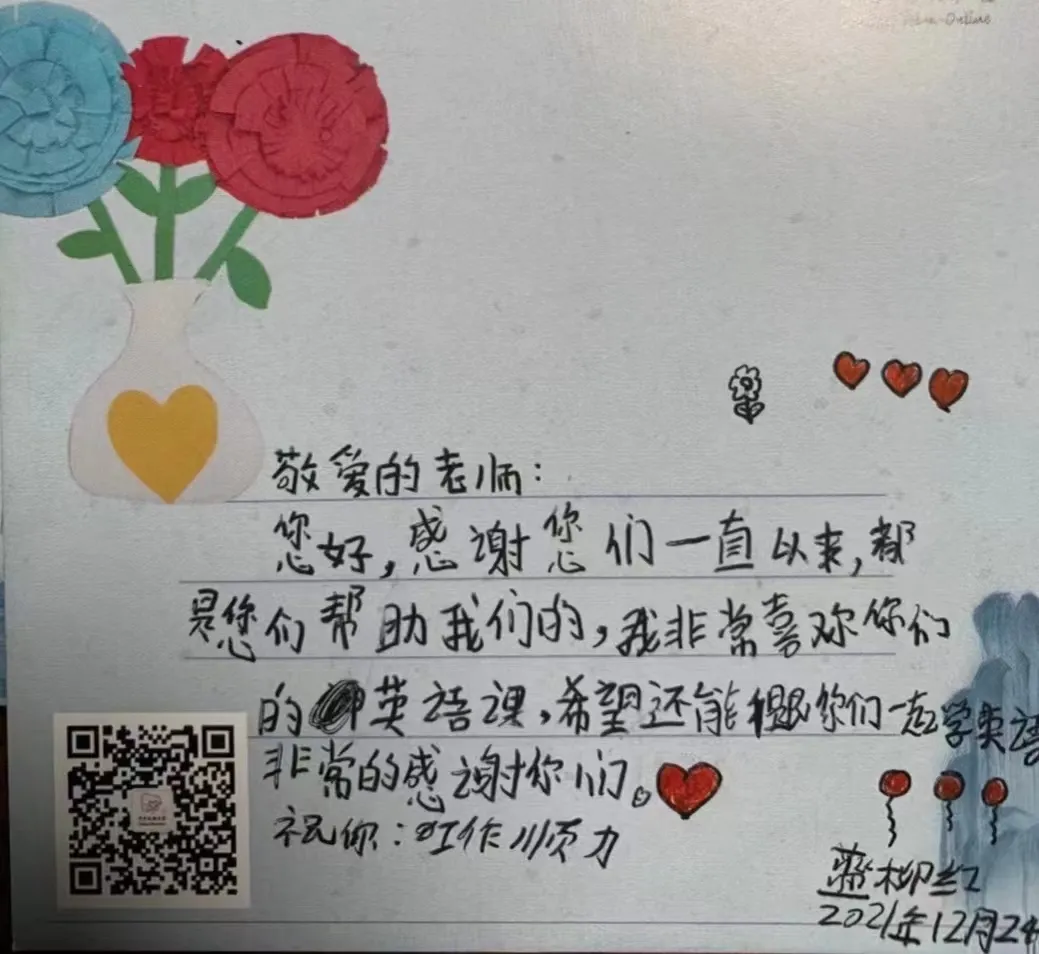 Online
敬爱的老师：
您好，感谢您们一直以来，都
是您们帮助我们的，我非常喜欢你们
的英语课，希望还能跟你们一起学英语
非常的感谢你们。
祝你：工作顺力
蓝柳红
2021年12月2